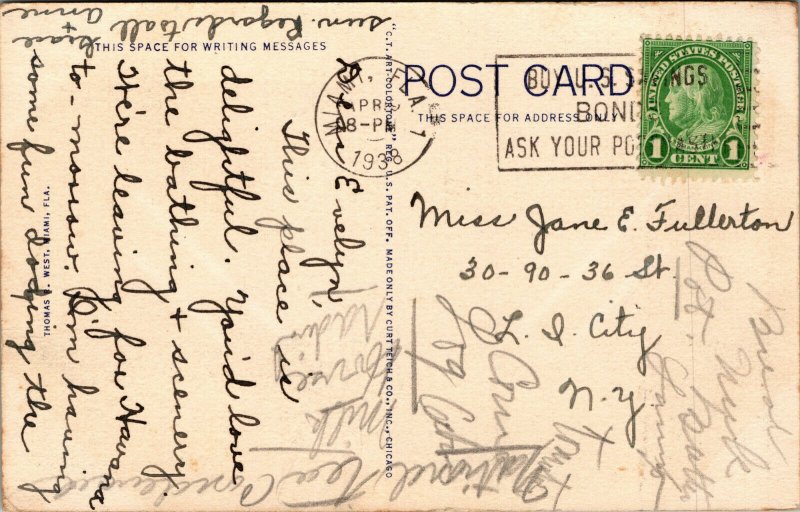 THIS SPACE FOR WRITING MESSAGES
Dear Evelyn,
This place is
delightful. You'd love
the bathing + scenery.
We're leaving for Havana
to-morrow. I'm having
some fun dodging the
sun. Regards to all
Anne
THOMAS WEST, MIAMI, FLA.
"C.T. ART-COLORTONE" REG. U.S. PAT. OFF. MADE ONLY BY CURT TEICH & CO., INC., CHICAGO
POST CARD
THIS SPACE FOR ADDRESS ONLY
MIAMI, FLA. 1
APR
8-PM
1938
BUY U.S. SAVINGS
BOND
ASK YOUR PO
UNITED STATES POSTAGE
1 CENT 1
Miss Jane E. Fullerton
30-90-36 St.
L. I. City
N.Y.
Bread
Pot.
Lamp
Corn
Milk